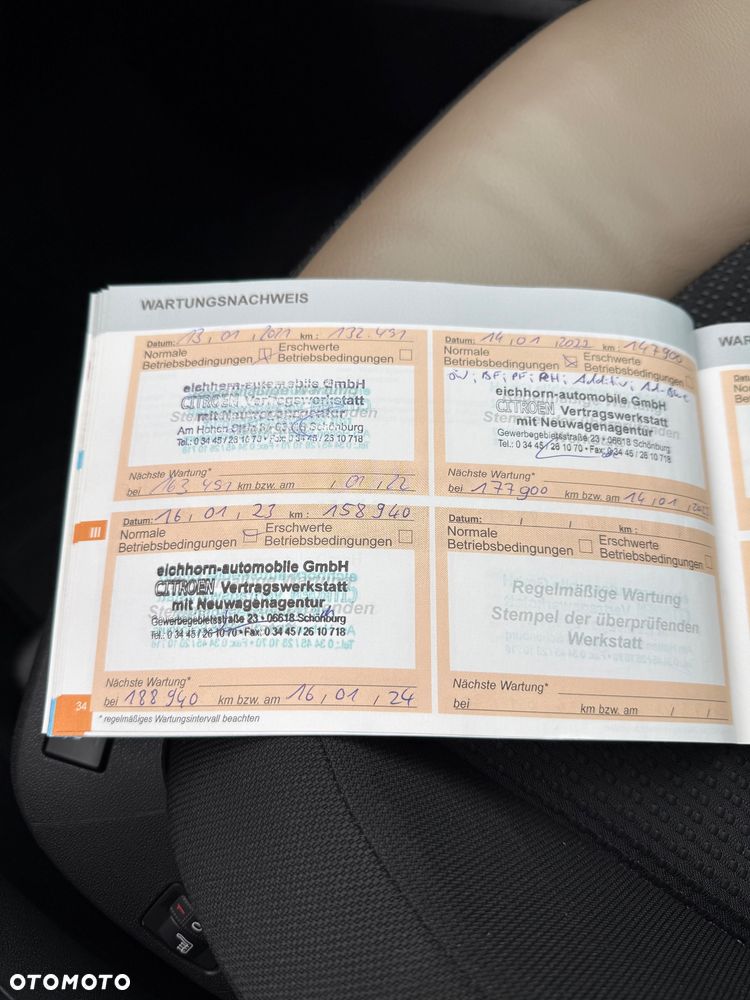 WARTUNGSNACHWEIS
Datum: 13, 01, 2021 km: 132.491
Normale Betriebsbedingungen
Erschwerte Betriebsbedingungen
eichhorn-automobile GmbH
CITROËN Vertragswerkstatt
mit Neuwagenagentur
Am Hohen 06618 Schönburg
Tel.: 0 34 45 / 26 10 70 • Fax: 0 34 45 / 26 10 718
Nächste Wartung*
bei 163.491 km bzw. am , 01, 22
Datum: 14, 01, 2022 km: 147900
Normale Betriebsbedingungen
Erschwerte Betriebsbedingungen
ÖW; BF; PF; RH; Additiv;
eichhorn-automobile GmbH
CITROËN Vertragswerkstatt
mit Neuwagenagentur
Gewerbegebietsstraße 23 • 06618 Schönburg
Tel.: 0 34 45 / 26 10 70 • Fax: 0 34 45 / 26 10 718
Nächste Wartung*
bei 177900 km bzw. am 14, 01,
Datum: 16, 01, 23 km: 158940
Normale Betriebsbedingungen
Erschwerte Betriebsbedingungen
eichhorn-automobile GmbH
CITROËN Vertragswerkstatt
mit Neuwagenagentur
Gewerbegebietsstraße 23 • 06618 Schönburg
Tel.: 0 34 45 / 26 10 70 • Fax: 0 34 45 / 26 10 718
Nächste Wartung*
bei 188940 km bzw. am 16, 01, 24
Datum: / / km:
Normale Betriebsbedingungen
Erschwerte Betriebsbedingungen
Regelmäßige Wartung
Stempel der überprüfenden
Werkstatt
Nächste Wartung*
bei km bzw. am / /
III
34
* regelmäßiges Wartungsintervall beachten
WAR
OTOMOTO